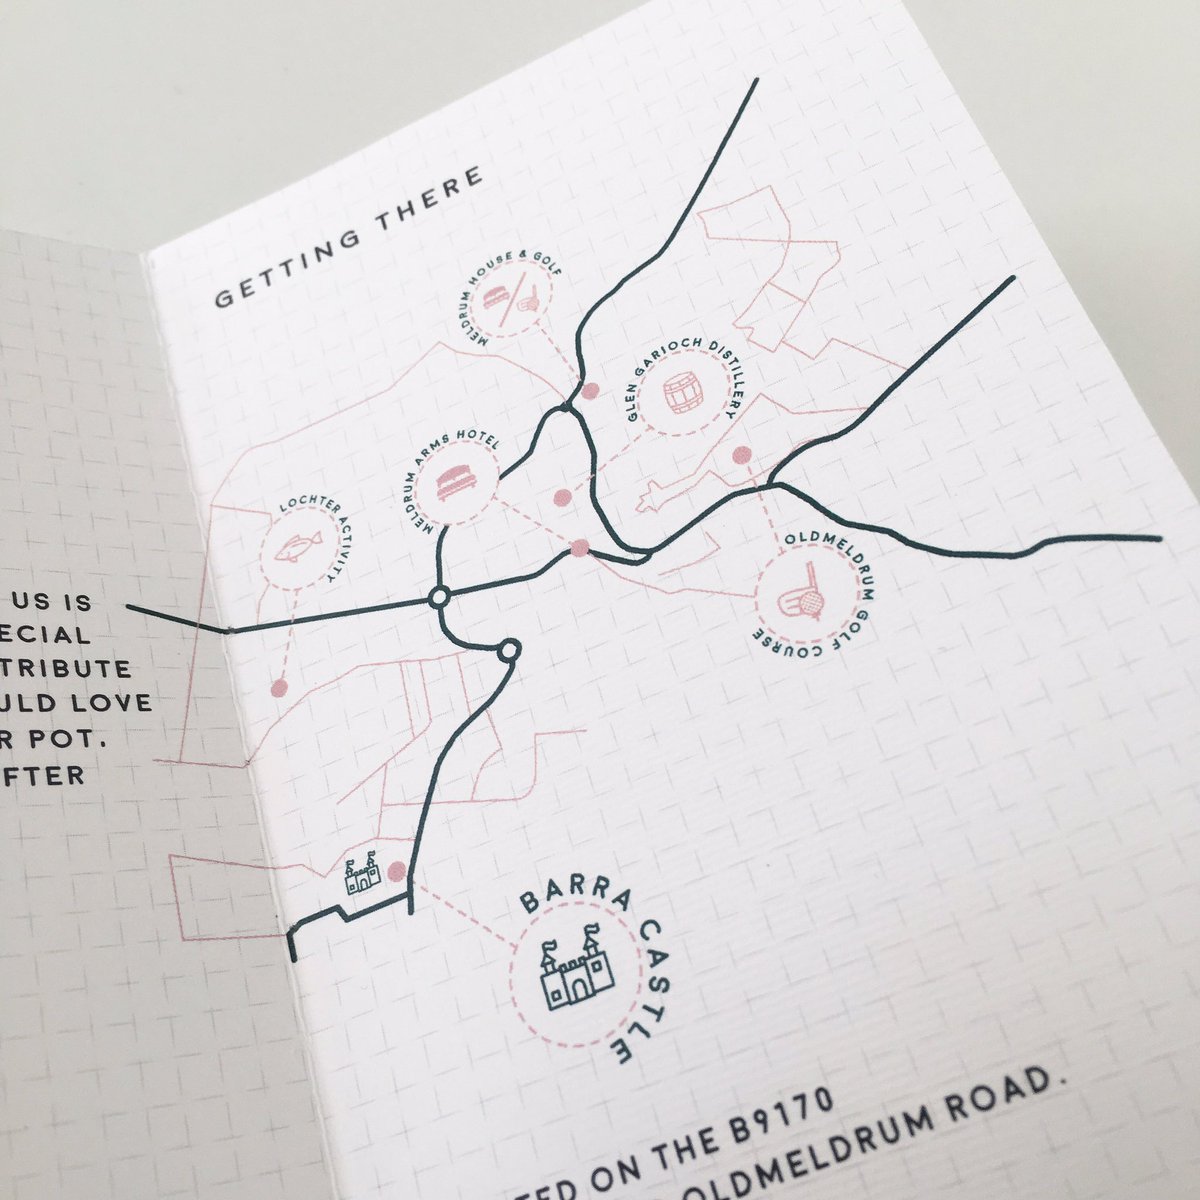 US IS
ECIAL
TRIBUTE
ULD LOVE
R POT.
FTER
GETTING THERE
MELDRUM HOUSE & GOLF
GLEN GARIOCH DISTILLERY
MELDRUM ARMS HOTEL
LOCHTER ACTIVITY
OLDMELDRUM GOLF COURSE
BARRA CASTLE
TED ON THE B9170
OLDMELDRUM ROAD.